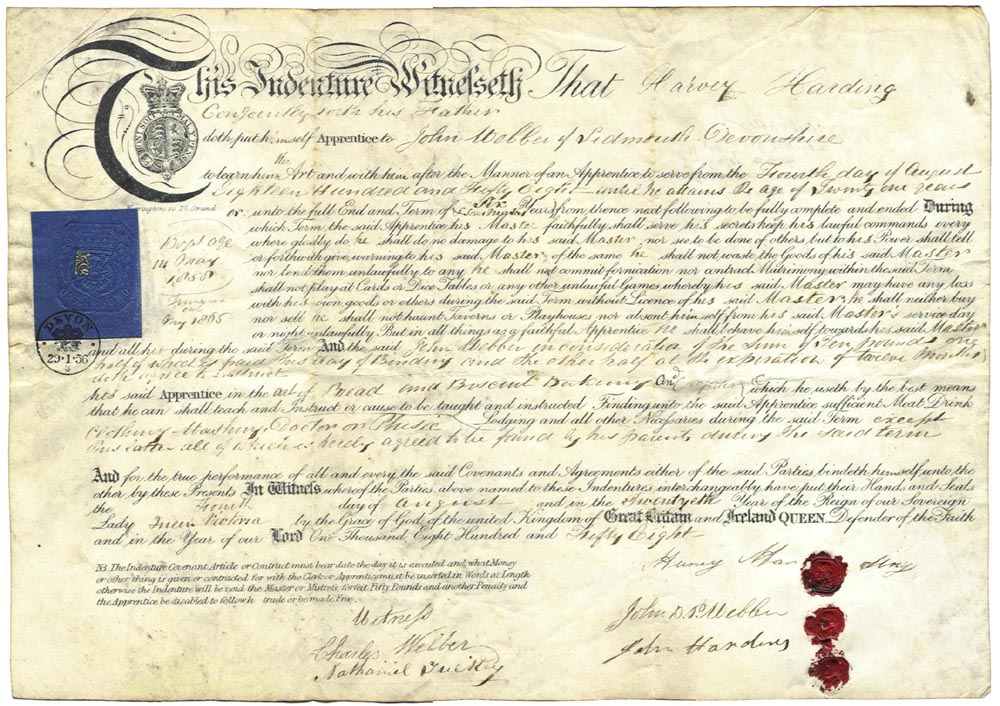 This Indenture Witnesseth That Harvey Harding
Conjointly with his Father
doth put himself Apprentice to John Webber of Sidmouth Devonshire
to learn him the Art and with him after the Manner of an Apprentice to serve from the Fourth day of August
Eighteen Hundred and Fifty Eight until he attains the age of Twenty one years
Warrington 27, Strand
or unto the full End and Term of Six Years from thence next following to be fully complete and ended During
which Term the said Apprentice his Master faithfully shall serve his secrets keep his lawful commands every
where gladly do he shall do no damage to his said Master nor see to be done of others but to his Power shall tell
or forthwith give warning to his said Master of the same he shall not waste the Goods of his said Master
nor lend them unlawfully to any he shall not commit fornication nor contract Matrimony within the said Term
shall not play at Cards or Dice Tables or any other unlawful Games whereby his said Master may have any loss
with his own goods or others during the said Term without Licence of his said Master he shall neither buy
nor sell he shall not haunt Taverns or Playhouses nor absent himself from his said Master's service day
or night unlawfully But in all things as a faithful Apprentice he shall behave himself towards his said Master
age
14 May
1858
May 1865
DEVON
29·1·56
and all his during the said Term And the said John Webber in consideration of the Sum of Ten pounds one
half of which paid this day of Binding and the other half at the expiration of twelve months
doth agree to instruct
his said Apprentice in the art of Bread and Biscuit Baking which he useth by the best means
that he can shall teach and Instruct or cause to be taught and instructed Finding unto the said Apprentice sufficient Meat Drink
Lodging and all other Necessaries during the said Term except
Clothing Washing Doctor or Physic
this latter all of which is hereby agreed to be found by his parents during the said term
And for the true performance of all and every the said Covenants and Agreements either of the said Parties bindeth himself unto the
other by these Presents In Witness whereof the Parties above named to these Indentures interchangeably have put their Hands and Seals
the Fourth day of August and in the Twentyeth Year of the Reign of our Sovereign
Lady Queen Victoria by the Grace of God of the united Kingdom of Great Britain and Ireland QUEEN Defender of the Faith
and in the Year of our Lord One Thousand Eight Hundred and Fifty Eight
NB. The Indenture Covenant Article or Contract must bear date the day it is executed and what Money
or other thing is given or contracted for with the Clerk or Apprentice must be inserted in Words at Length
otherwise the Indenture will be void the Master or Mistress forfeit Fifty Pounds and another Penalty and
the Apprentice be disabled to follow h trade or be made Free.
Harvey Harding
Witness
John D. P. Webber
Charles Webber
John Harding
Nathaniel